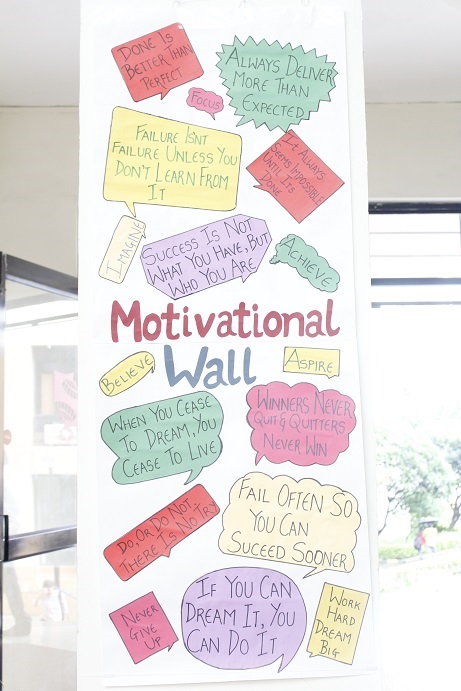 DONE IS
BETTER THAN
PERFECT
ALWAYS DELIVER
MORE THAN
EXPECTED
FOCUS
FAILURE ISNT
FAILURE UNLESS YOU
DON'T LEARN FROM
IT
IT ALWAYS
SEEMS IMPOSSIBLE
UNTIL ITS
DONE
IMAGINE
SUCCESS IS NOT
WHAT YOU HAVE, BUT
WHO YOU ARE
ACHIEVE
Motivational
Wall
BELIEVE
ASPIRE
WHEN YOU CEASE
TO DREAM, YOU
CEASE TO LIVE
WINNERS NEVER
QUIT & QUITTERS
NEVER WIN
DO, OR DO NOT.
THERE IS NO TRY
FAIL OFTEN SO
YOU CAN
SUCEED SOONER
NEVER
GIVE
UP
IF YOU CAN
DREAM IT, YOU
CAN DO IT
WORK
HARD
DREAM
BIG